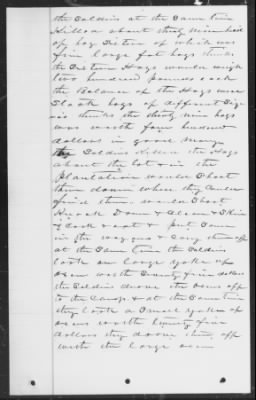 the Soldiers at the Same time
Killed about thirty nine head
of hog Sixteen of which was
fine large fat hogs thinks
the Sixteen Hogs would weigh
two hundred pounds each
the Balance of the Hogs were
Stock hogs of different Size
thinks the thirty nine hogs
was worth four hundred
dollars in good money
the Soldiers Killed the Hogs
about the lot & in the
plantation would Shoot
them down when they could
find them would Shoot
Knock Down & Clean & Skin
& Cook & eat & put Some
in the wagons & carry them off
at the Same time the Soldiers
took one large yoke of
oxen worth Seventy five dollars
the Soldiers drove the oxen off
to the Camps & at the Same time
they took a Small yoke of
oxen worth twenty five
dollars they drove them off
with the large oxen